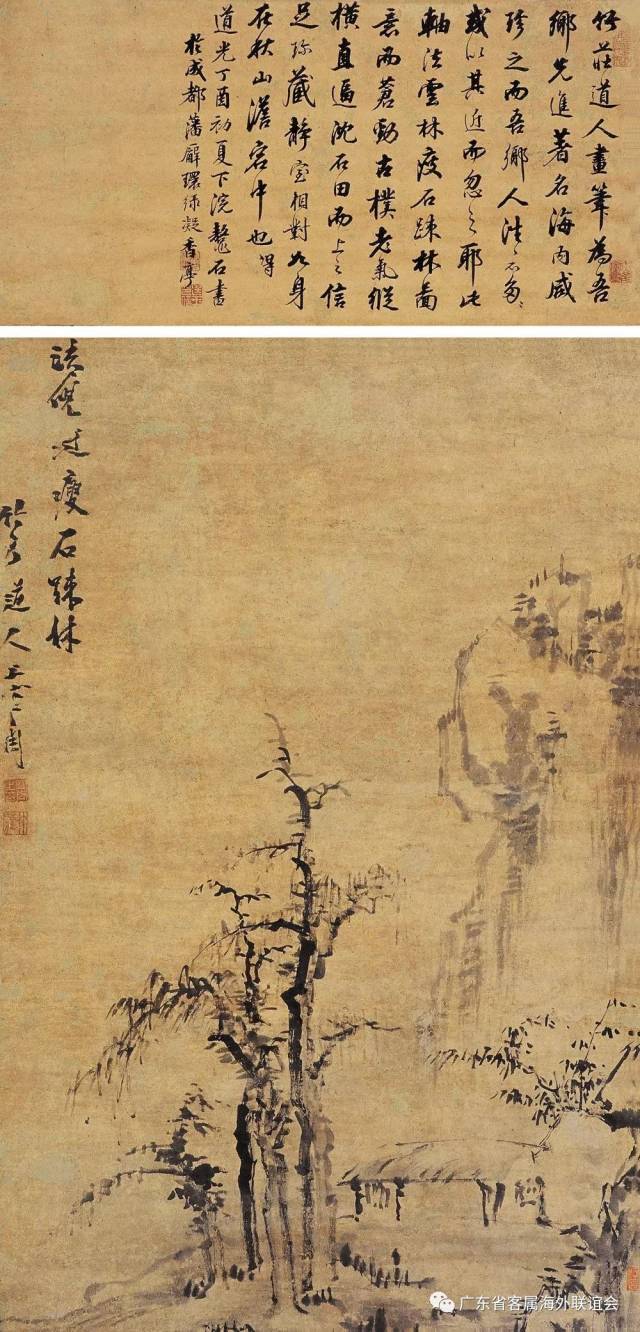 竹莊道人畫筆為吾
鄉先進著名海內咸
珍之而吾鄉人往
或以其近而忽之耶此
軸法雲林瘦石疎林啚
意而蒼勁古樸老氣縱
橫直逼沈石田而上之信
足珍藏靜室相對如身
在秋山澹宕中也
道光丁酉初夏下浣鼇石書
於成都藩廨環綠凝香亭
倪迂瘦石疎林
竹莊道人上官周
广东省客属海外联谊会